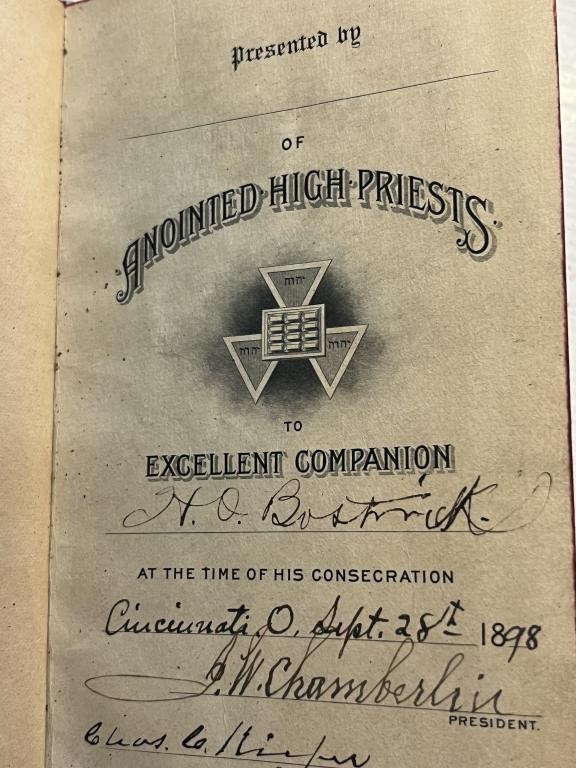 Presented by
OF
ANOINTED·HIGH·PRIESTS·
יהוה
יהוה יהוה
TO
EXCELLENT COMPANION
H. O. Bostwick.
AT THE TIME OF HIS CONSECRATION
Cincinnati, O. Sept. 28th 1898
J. W. Chamberlin
PRESIDENT.
Chas. C. Kiefer